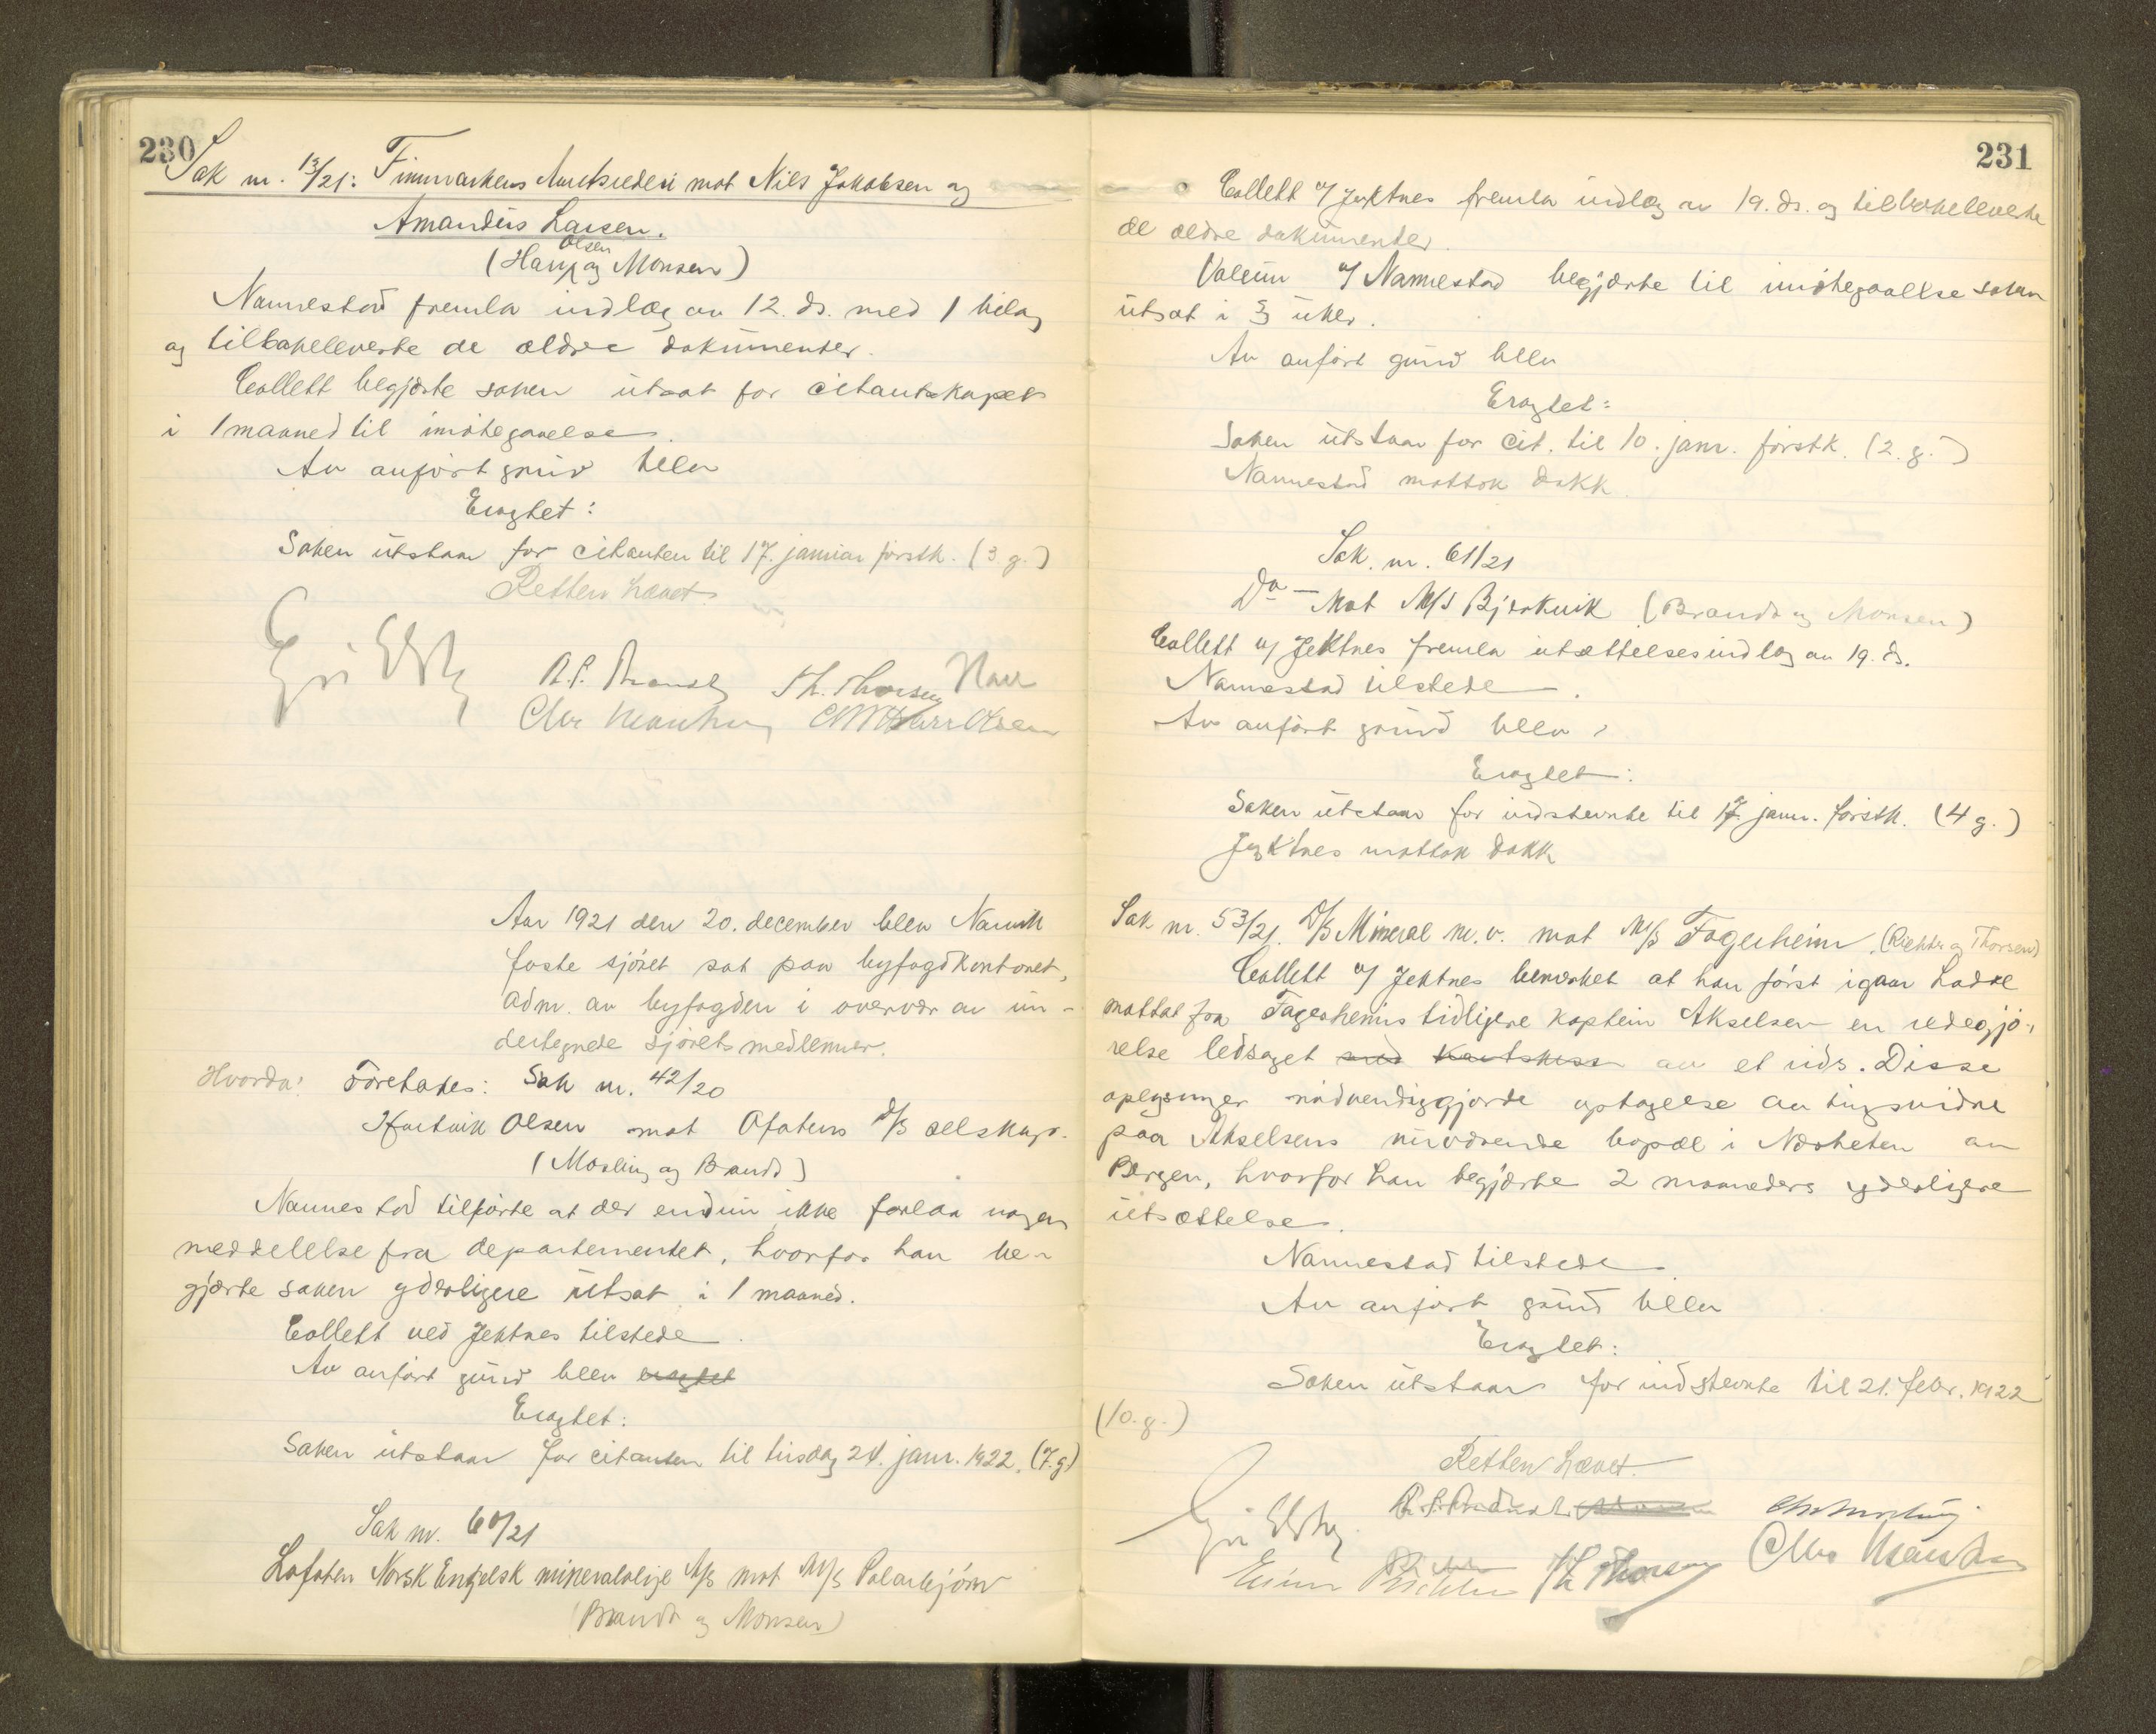 230
Sak nr. 13/21: Finmarkens Amtsrederi mot Nils Jakobsen og
Amandus Larsen.
(Harr Olsen og Monsen)
Nannestad fremla indlæg av 12. ds. med 1 bilag
og tilbakeleverte de ældre dokumenter.
Collett begjærte saken utsat for citantskapet
i 1 maaned til imøtegaaelse.
Av anført grund blev
Eragtet:
Saken utstaar for citanten til 17. januar førstk. (3. g.)
Retten hævet.
Th. Thorsen Harr
Chr Monsen Harr Olsen
Aar 1921 den 20. december blev Narvik
faste sjøret sat paa byfogdkontoret,
adm. av byfogden i overvær av un-
dertegnede sjøretsmedlemmer.
Hvorda: Foretakes: Sak nr. 42/20
Hartvik Olsen mot Ofotens D/S selskap.
(Mosling og Brandt)
Nannestad tilførte at der endnu ikke forlaa nogen
meddelelse fra departementet, hvorfor han be-
gjærte saken yderligere utsat i 1 maaned.
Collett ved Jektnes tilstede.
Av anført grund blev eragtet
Eragtet:
Saken utstaar for citanten til tirsdag 24. janr. 1922. (7. g.)
Sak nr. 60/21
Lofoten Norsk Engelsk mineralolje A/S mot M/S Polarbjørn
(Brandt og Monsen)
231
Collett v/ Jektnes fremla indlæg av 19. ds. og tilbakeleverte
de ældre dokumenter.
v/ Nannestad begjærte til imøtegaaelse saken
utsat i 3 uker.
Av anført grund blev
Eragtet:
Saken utstaar for cit. til 10. janr. førstk. (2. g.)
Nannestad mottok dokk.
Sak. nr. 61/21
Do - mot M/S Bjerkvik (Brandt og Monsen)
Collett v/ Jektnes fremla utsættelsesindlæg av 19. ds.
Nannestad tilstede.
Av anført grund blev
Eragtet:
Saken utstaar for indstevnte til 17. janr. førstk. (4 g.)
Jektnes mottok dokk
Sak nr. 53/21. D/S Mineral m. v. mot M/S Fagerheim. (Richter og Thorsen)
Collett v/ Jektnes bemerket at han først igaar hadde
mottat fra Fagerheims tidligere kaptein Akselsen en redegjø-
relse ledsaget med kartskisse av et rids. Disse
oplysninger nødvendiggjorde optagelse av tingsvidne
paa Akselsens nuværende bopæl i Nærheten av
Bergen, hvorfor han begjærte 2 maaneders yderligere
utsættelse.
Nannestad tilstede.
Av anført grund blev
Eragtet:
Saken utstaar for indstevnte til 21. febr. 1922
(10. g.)
Retten hævet.
Einar Richter Th Thorsen Chr Monsen